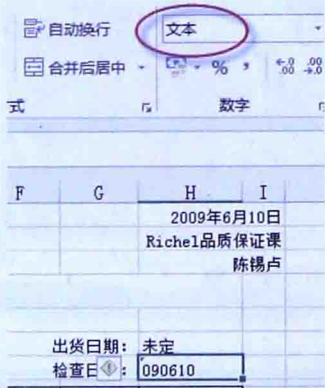 自动换行
文本
合并后居中
%
,
式
数字
F G H I
2009年6月10日
Richel品质保证课
陈锡卢
出货日期: 未定
检查日 : 090610